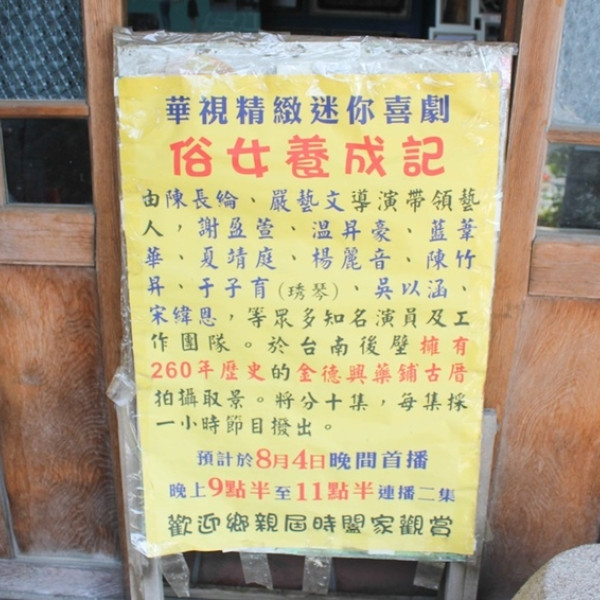 華視精緻迷你喜劇
俗女養成記
由陳長綸、嚴藝文導演帶領藝
人，謝盈萱、溫昇豪、藍葦
華、夏靖庭、楊麗音、陳竹
昇、于子育(琇琴)、吳以涵、
宋緯恩，等眾多知名演員及工
作團隊。於台南後壁擁有
260年歷史的金德興藥鋪古厝
拍攝取景。將分十集，每集採
一小時節目撥出。
預計於8月4日晚間首播
晚上9點半至11點半連播二集
歡迎鄉親屆時闔家觀賞